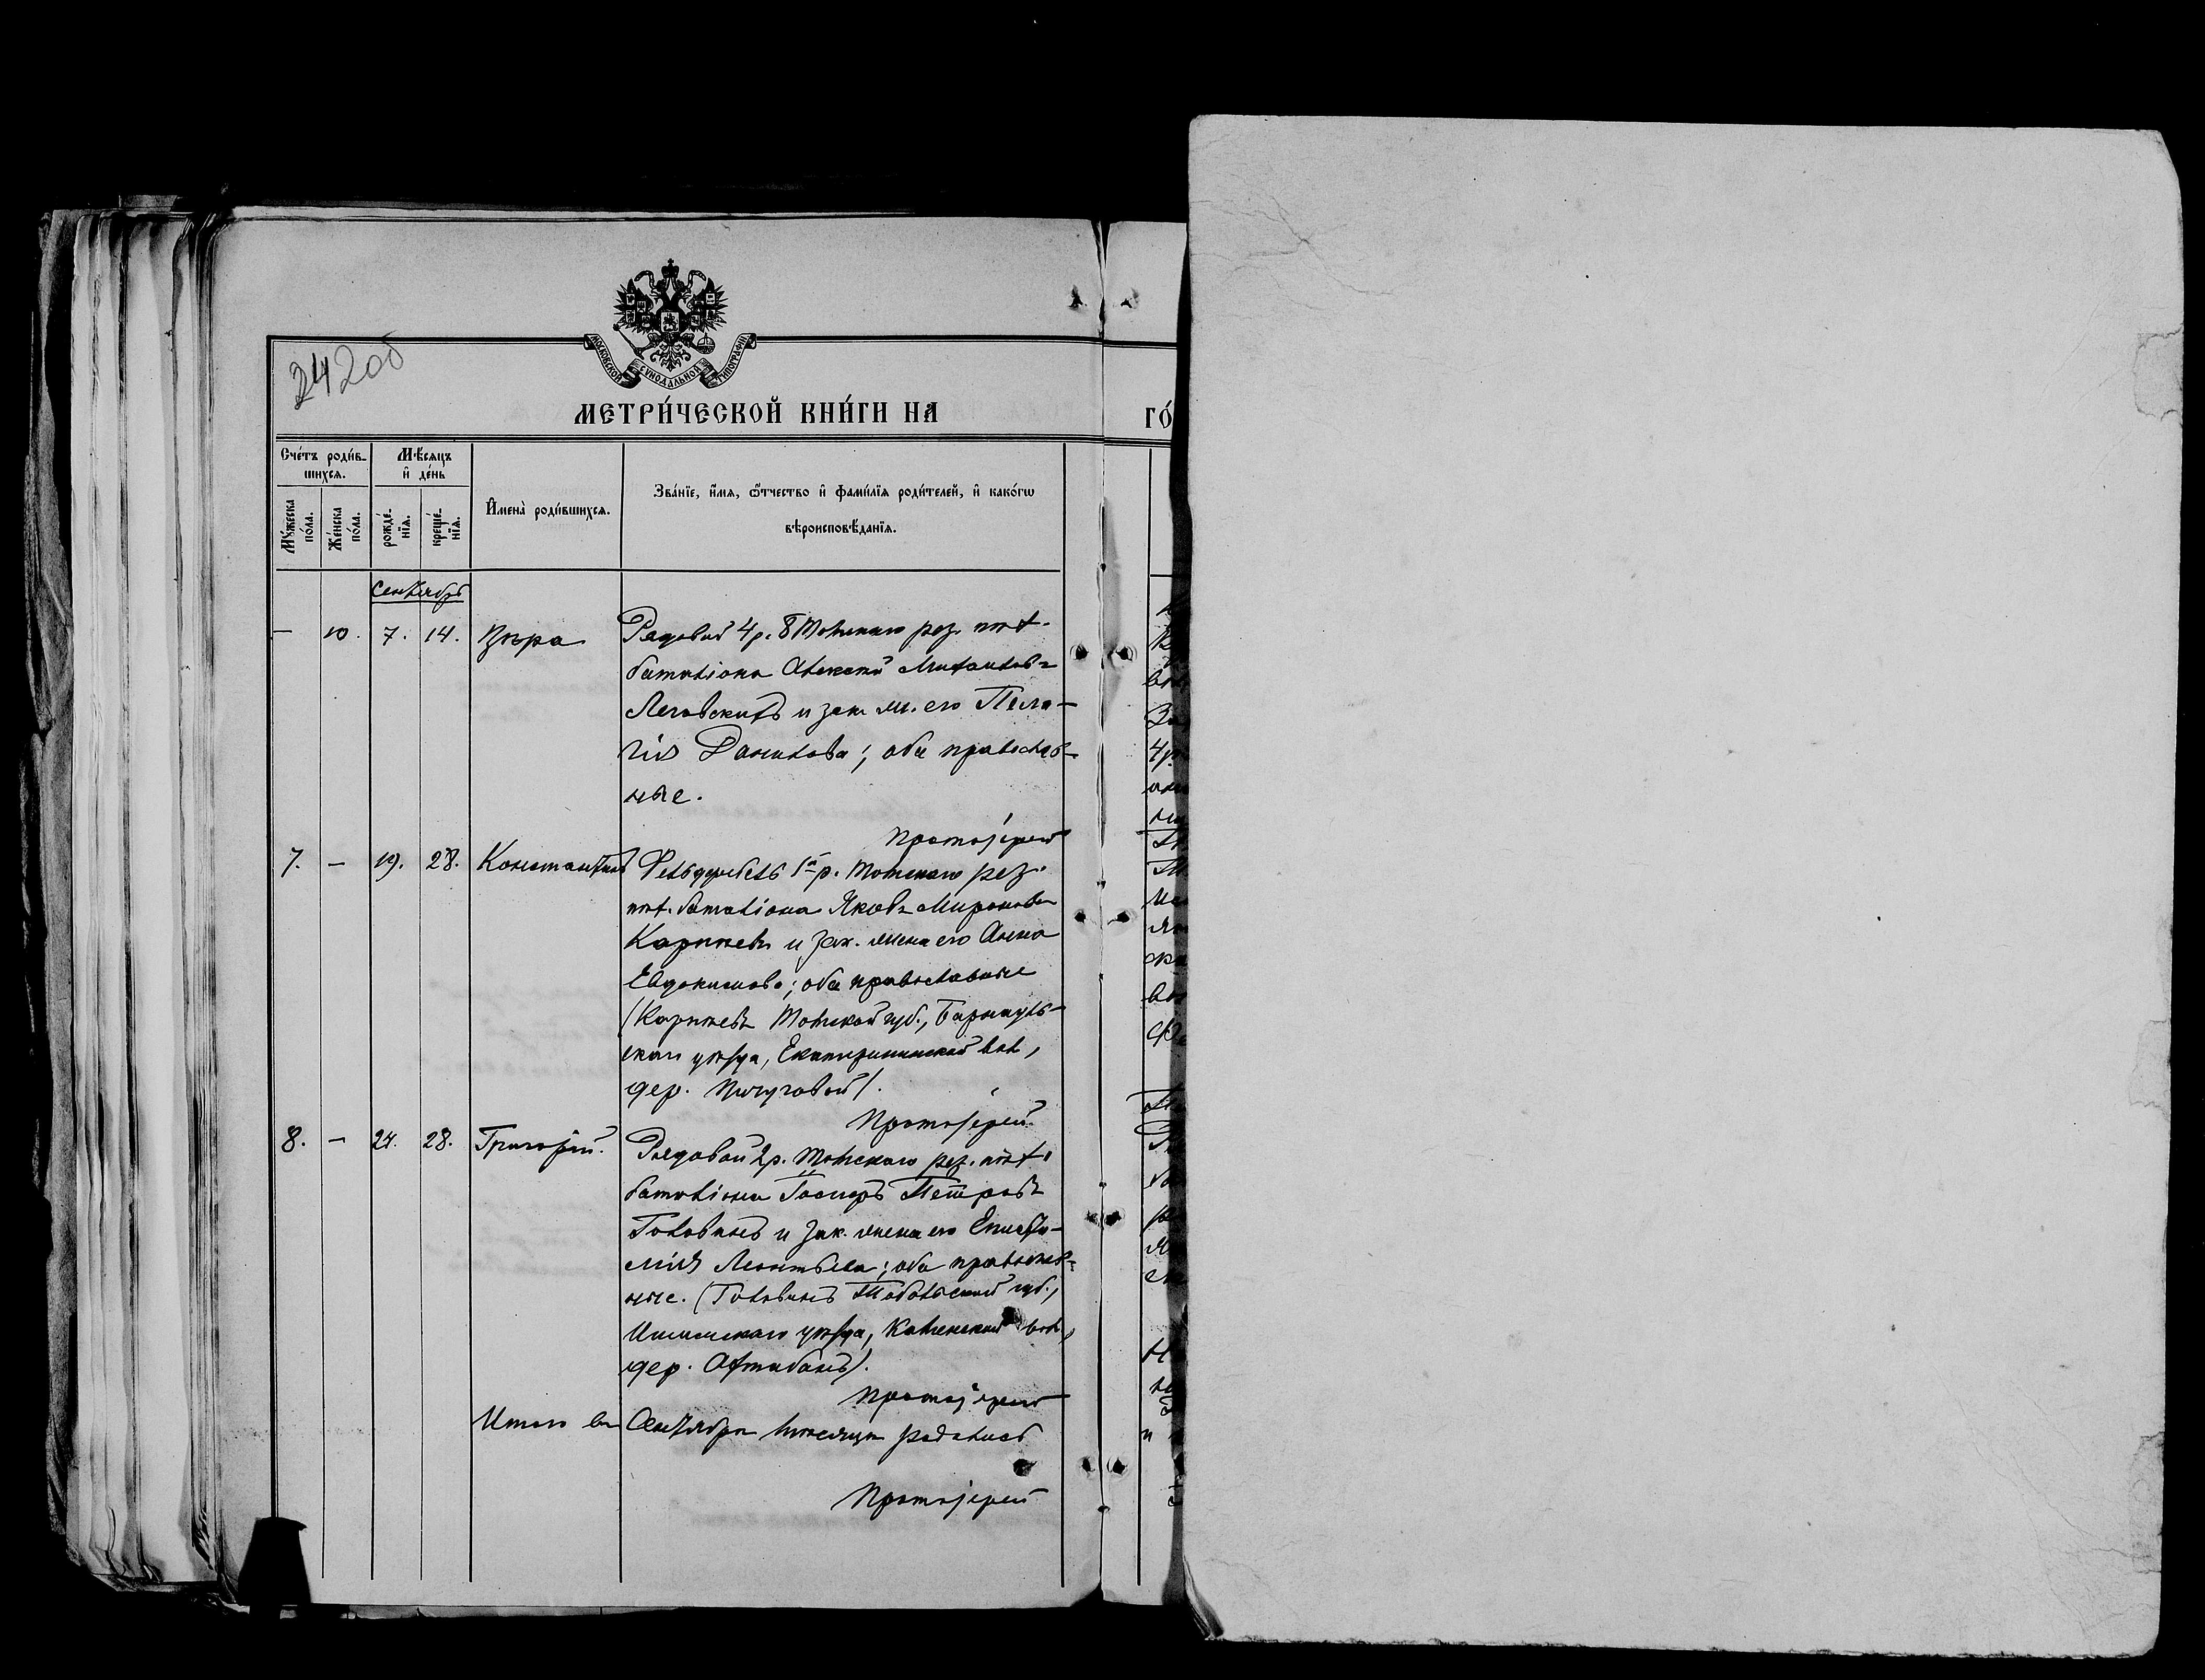 24 200
МОСКОВСКОЙ СѴНОДАЛЬНОЙ ТИПОГРАФІИ
МЕТРИ́ЧЕСКОЙ КНИ́ГИ НА
ГО́
Сче́тъ роди́в-
шихся.
Мѣ́сяцъ
и де́нь
Мꙋ́жеска
по́ла.
Же́нска
по́ла.
рожде́-
нїя.
креще́-
нїя.
Имена̀ роди́вшихся.
Зва́нїе, и́мя, ѻ́тчество и фами́лїя роди́телей, и како́гѡ
вѣроисповѣ́данїя.
Сентябрь
— 10. 7. 14. Вѣра Рядовой 4 р. Томскаго рез. пѣх.
баталіона Алексѣй Михаиловъ
и зак. ж. его Пела-
гія Данилова; оба православ-
ные.
Протоіерей
7. — 19. 28. Константинъ Фельдфебель 1й р. Томскаго рез.
пѣх. баталіона Яковъ Мироновъ
и зак. жена его Анна
Евдокимова; оба православные
Томской губ., Барнауль-
скаго уѣзда, Екатерининской вол,
дер. Пичуговой).
Протоіерей
8. — 24. 28. Григорій. Рядовой 2 р. Томскаго рез. пѣх.
баталіона Петровъ
Головинъ и зак. жена его Еписти-
мія Леонтьева; оба православ-
ные. (Головинъ Тобольской губ.,
Ишимскаго уѣзда, вол,
дер.
Протоіерей
Итого въ Сентябрѣ мѣсяцѣ родилось
Протоіерей